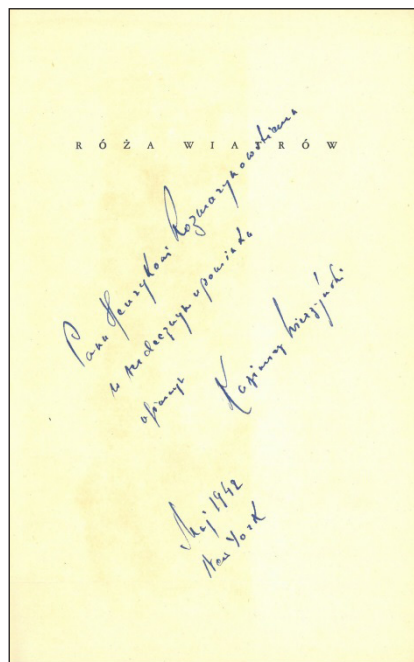 RÓŻA WIATRÓW
Panu Henrykowi Rozmarynowskiemu
w serdecznym upominku
ofiaruję
Kazimierz Wierzyński
Maj 1942
New York